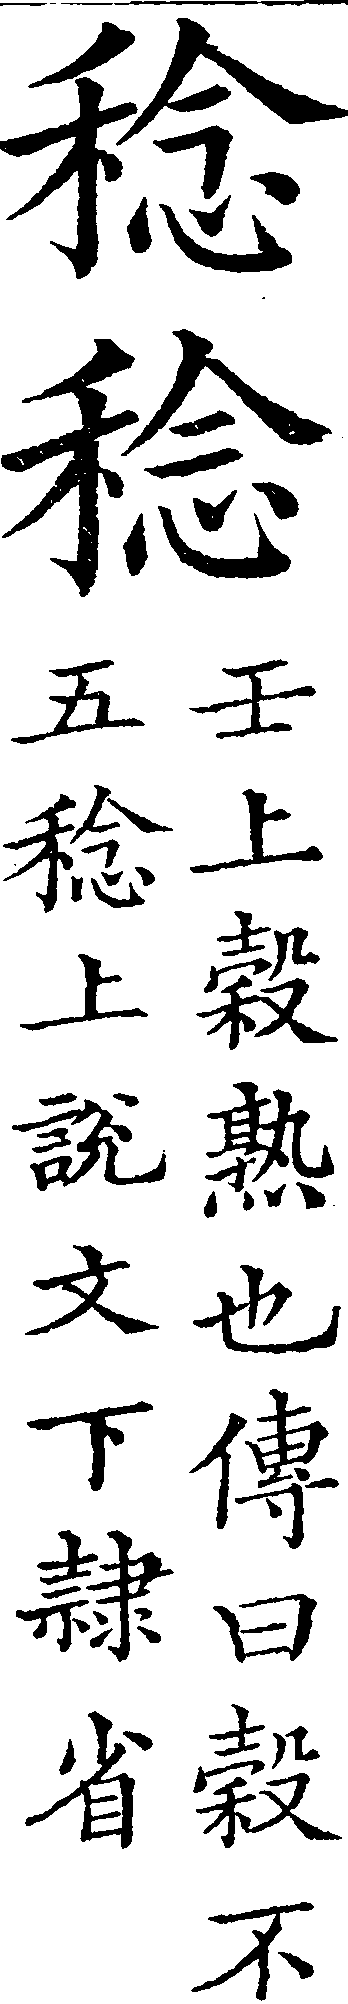 稔稔
壬上穀熟也傳曰穀不
五稔上說文下隸省